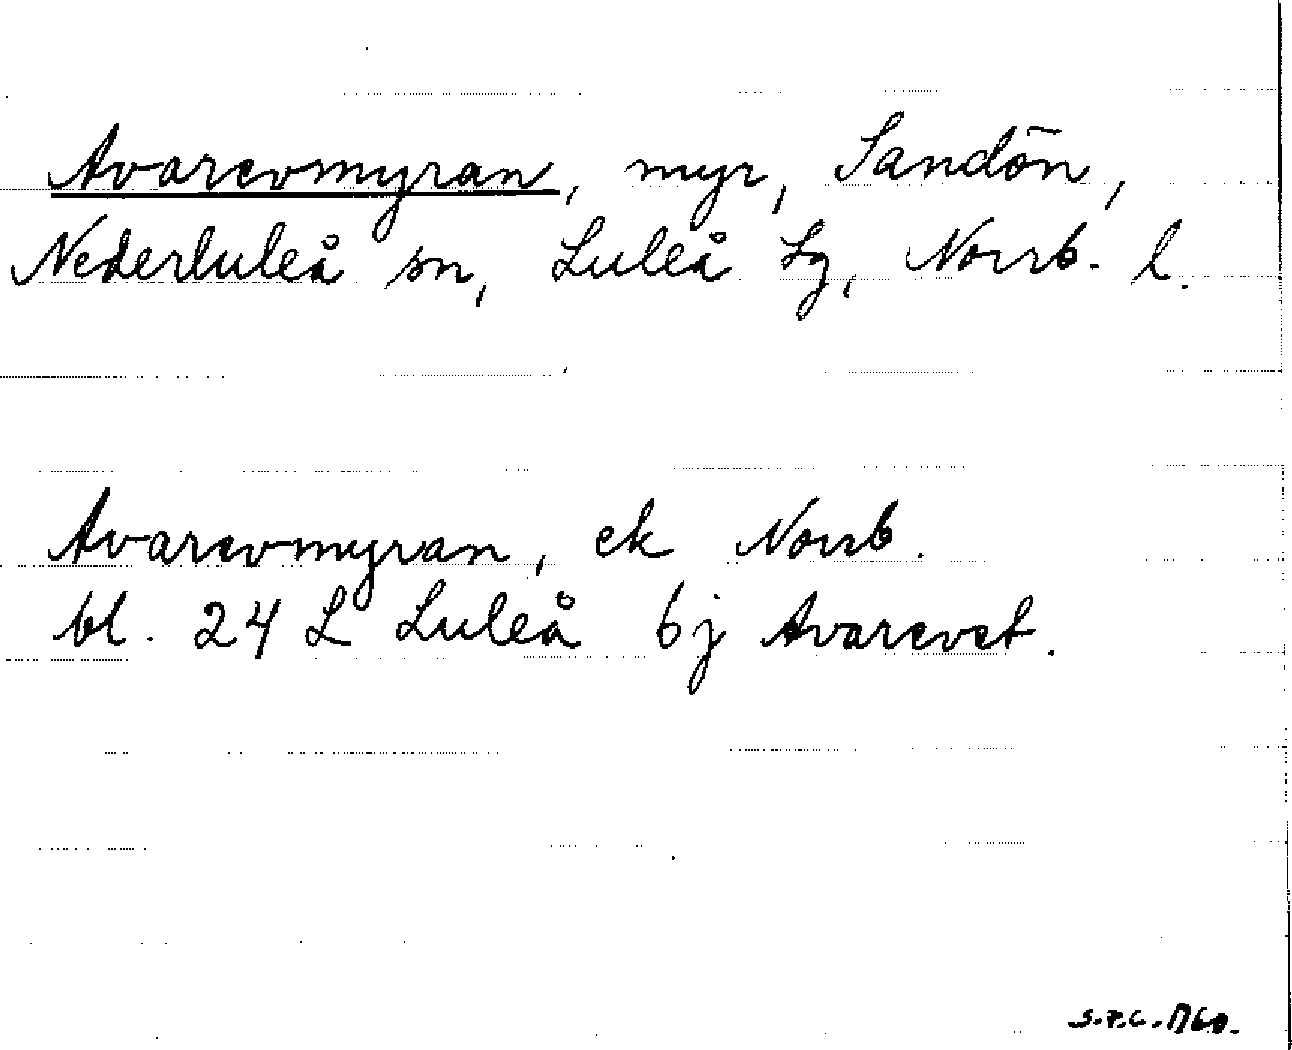 Avarevmyran, myr, Sandön,
Nederluleå sn, Luleå tg, Norrb. l.
Avarevmyran, ek Norrb.
bl. 24 L Luleå bj Avarevet.